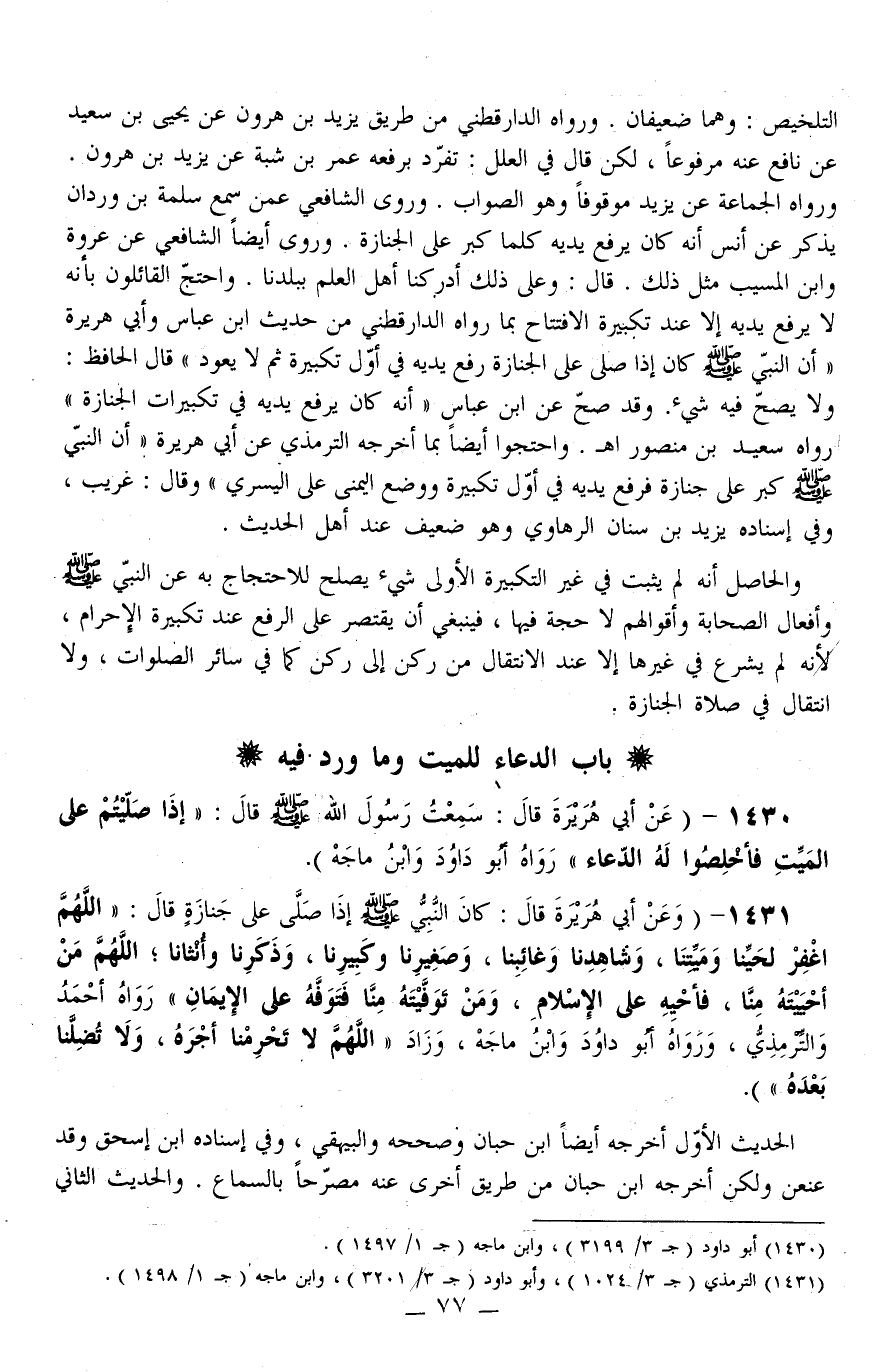 التلخيص : وهما ضعيفان . ورواه الدارقطني من طريق يزيد بن هرون عن يحيى بن سعيد
عن نافع عنه مرفوعاً ، لكن قال في العلل : تفرّد برفعه عمر بن شبة عن يزيد بن هرون .
ورواه الجماعة عن يزيد موقوفاً وهو الصواب . وروى الشافعي عمن سمع سلمة بن وردان
يذكر عن أنس أنه كان يرفع يديه كلما كبر على الجنازة . وروى أيضاً الشافعي عن عروة
وابن المسيب مثل ذلك . قال : وعلى ذلك أدركنا أهل العلم ببلدنا . واحتجّ القائلون بأنه
لا يرفع يديه إلا عند تكبيرة الافتتاح بما رواه الدارقطني من حديث ابن عباس وأبي هريرة
« أن النبيّ ﷺ كان إذا صلى على الجنازة رفع يديه في أوّل تكبيرة ثم لا يعود » قال الحافظ :
ولا يصحّ فيه شيء. وقد صحّ عن ابن عباس « أنه كان يرفع يديه في تكبيرات الجنازة »
رواه سعيد بن منصور اهـ . واحتجوا أيضاً بما أخرجه الترمذي عن أبي هريرة « أن النبيّ
ﷺ كبر على جنازة فرفع يديه في أوّل تكبيرة ووضع اليمنى على اليسري » وقال : غريب ،
وفي إسناده يزيد بن سنان الرهاوي وهو ضعيف عند أهل الحديث .
والحاصل أنه لم يثبت في غير التكبيرة الأولى شيء يصلح للاحتجاج به عن النبيّ ﷺ
وأفعال الصحابة وأقوالهم لا حجة فيها ، فينبغي أن يقتصر على الرفع عند تكبيرة الإحرام ،
لأنه لم يشرع في غيرها إلا عند الانتقال من ركن إلى ركن كما في سائر الصلوات ، ولا
انتقال في صلاة الجنازة .
❋ باب الدعاء للميت وما ورد فيه ❋
١٤٣٠ – ( عَنْ أبي هُرَيْرَةَ قالَ : سَمِعْتُ رَسُولَ الله ﷺ قالَ : « إذَا صَلَّيْتُمْ على
المَيِّتِ فأخْلِصُوا لَهُ الدّعاء » رَوَاهُ أبُو دَاوُدَ وَابْنُ ماجَهْ ).
١٤٣١- ( وَعَنْ أبي هُرَيْرَةَ قالَ : كانَ النَّبِيُّ ﷺ إذَا صَلَّى على جَنازَةٍ قالَ : « اللَّهُمَّ
اغْفِرْ لحَيِّنا وَمَيِّتَنا ، وَشَاهِدِنا وَغائِبنا ، وَصَغِيرِنا وكَبِيرِنا ، وَذَكَرِنا وأُنْثانا ؛ اللَّهُمَّ مَنْ
أحْيَيْتَهُ مِنَّا ، فأحْيِهِ على الإِسْلامِ ، وَمَنْ تَوَفَّيْتَهُ مِنَّا فَتَوَفَّهُ على الإِيمَانِ » رَوَاهُ أحْمَدُ
وَالتِّرْمِذِيُّ ، وَرَوَاهُ أبُو داوُدَ وَابْنُ ماجَهْ ، وَزَادَ « اللَّهُمَّ لا تَحْرِمْنا أجْرَهُ ، وَلَا تُضِلَّنا
بَعْدَهُ » ).
الحديث الأوّل أخرجه أيضاً ابن حبان وصححه والبيهقي ، وفي إسناده ابن إسحق وقد
عنعن ولكن أخرجه ابن حبان من طريق أخرى عنه مصرّحاً بالسماع . والحديث الثاني
(١٤٣٠) أبو داود ( جـ ٣/ ٣١٩٩ ) ، وابن ماجه ( جـ ١/ ١٤٩٧ ) .
(١٤٣١) الترمذي ( جـ ٣/ ١٠٢٤ ) ، وأبو داود ( جـ ٣/ ٣٢٠١ ) ، وابن ماجه ( جـ ١/ ١٤٩٨ ) .
– ٧٧ –